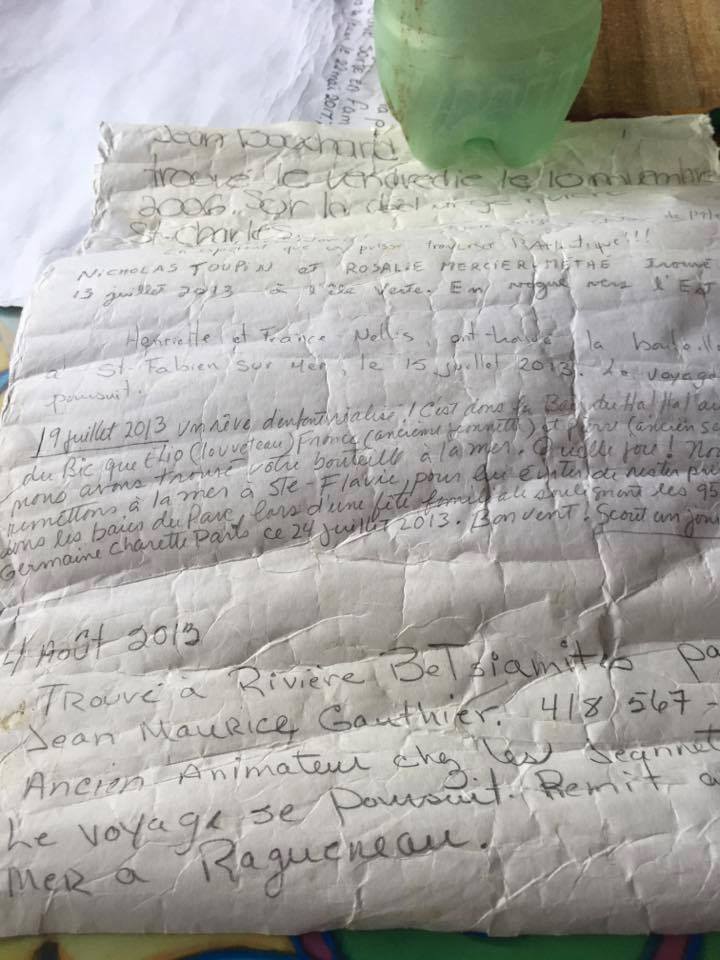 Jean Bouchard
trouvé le vendredie le 10 novembre
2006. Sur la
St-Charles
puisse traverser l'Atlantique!!!
NICHOLAS TOUPIN et ROSALIE MERCIER-MÉTHÉ trouvé
13 juillet 2013 à l'île Verte. En vogue vers l'Est
Henriette et France Nellis, ont trouvé la bouteille
à St-Fabien sur Mer, le 15 juillet 2013. Le voyage
poursuit.
19 juillet 2013 un rêve d'enfant réalisé! C'est dans la Baie du Ha! Ha! au
du Bic que (louveteau) France (ancienne jeannette) et (ancien
nous avons trouvé votre bouteille à la mer. Quelle joie! Nou
remettons à la mer à Ste Flavie, pour lui éviter de rester pri
dans les baies du Parc, lors d'une fête familiale soulignant les 95
Germaine Charette Paris ce 24 juillet 2013. Bon vent! Scout un jour
Août 2013
TROUVÉ à RIVIÈRE BETSIAMITIS pa
Jean MAURICE Gauthier. 418 567-
ANCIEN ANIMATEUR chez les Jeannet
Le voyage se poursuit. Remit a
MER a RAGUENEAU.
22 mai 2017